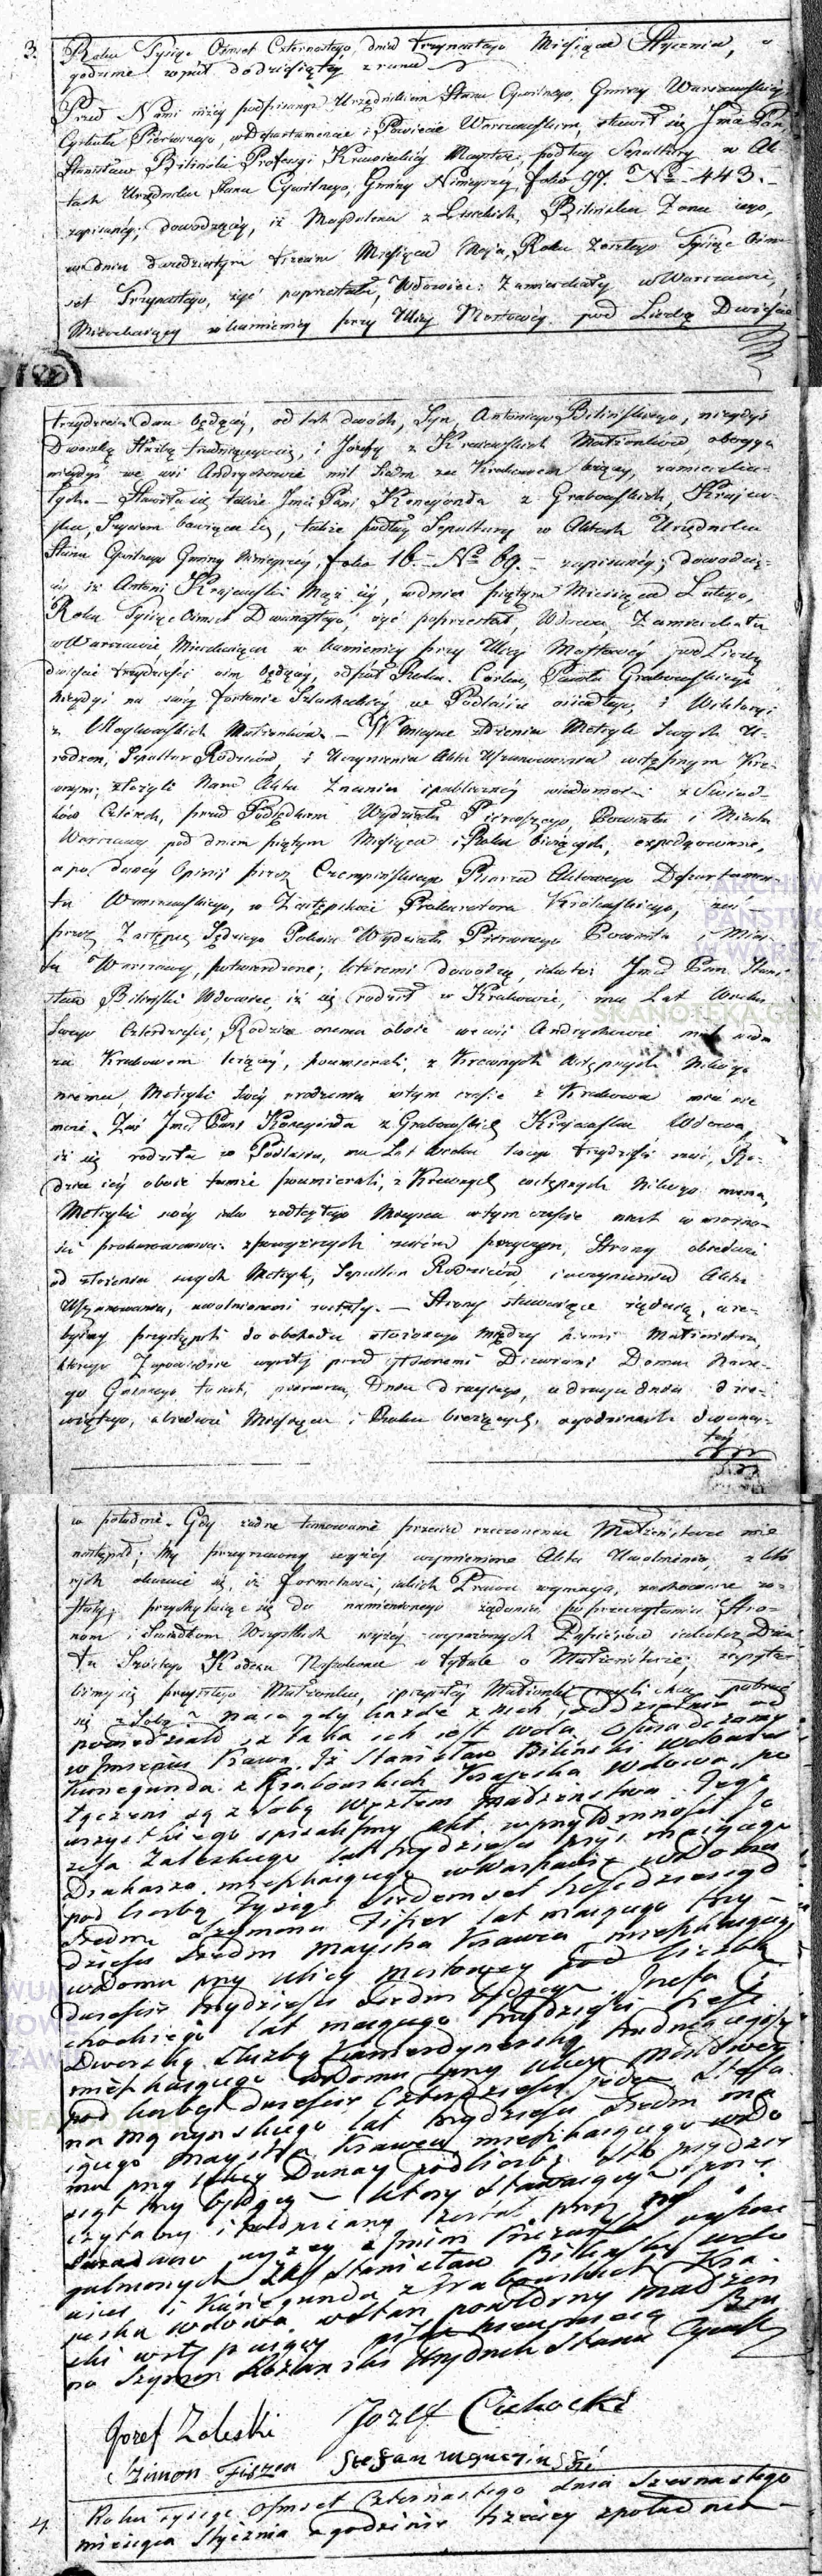 3. Roku Tysiąc Ośmset Czternastego, dnia trzynastego Miesiąca Stycznia, o
godzinie wpół do dziesiątey z rana
Przed Nami niżey podpisanym Urzędnikiem Stanu Cywilnego, Gminy Warszawskiey
Cyrkułu Pierwszego, w Departamencie i Powiecie Warszawskim, stawił się Jmć Pan
Stanisław Biliński Profesyi Krawieckiey Mayster, podług Sepultury w Ak
tach Urzędnika Stanu Cywilnego, Gminy Ninieyszey, folio 97. No 443. –
zapisaney; dowodzącey, iż Magdalena z Bilińska Żona iego,
w dniu dwudziestym trzecim Miesiąca Maja, Roku zeszłego Tysiąc Ośm-
set Trzynastego, żyć poprzestała, Wdowiec: Zamieszkały w Warszawie,
Mieszkaiący w kamienicy przy Ulicy Mostowey pod Liczbą Dwieście
trzydzieści dwa będącey, od lat dwóch, Syn, Antoniego Bilińskiego, niegdyś
Dworską Służbą trudniącego się, i Józefy z Małżonków, oboyga
niegdyś we wsi Andrychowie mil siedm za Krakowem leżącey, zamieszka-
łych. – Stawiła się także Jmć Pani Konegonda z Grabowskich, Krajew
ska, Szyciem bawiąca się, także podług Sepultury w Aktach Urzędnika
Stanu Cywilnego Gminy Ninieyszey, folio 16. – No 69. – zapisaney; dowodzą-
cey iż Antoni Krajewski Mąż iey, w dniu piątym Miesiąca Lutego,
Roku Tysiąc Ośmset Dwunastego, żyć poprzestał, Wdowa, Zamieszkała
w Warszawie Mieszkaiąca w kamienicy przy Ulicy Mostowey pod Liczbą
dwieście trzydzieści ośm będącey, od pół Roku. Córka, Pawła Grabowskiego
niegdyś na swey fortunie Szlacheckiey, w Podlasiu osiadłego, i Wiktoryi
z Małżonków. – W mieysce złożenia Metryk swych U-
rodzeń, Sepultur Rodziców, i Uczynienia Aktu Uszanowania wstępnym Kre-
wnym; złożyli Nam Akta Znania i publiczney wiadomości z Świad-
ków Czterech, przed Podsędkiem Wydziału Pierwszego Powiatu i Miasta
Warszawy pod dniem piątym Miesiąca i Roku bieżących, expedyowane,
a po daney Opinii przez Czempińskiego Pisarza Aktowego Departamen-
tu Warszawskiego, w Zastępstwie Prokuratora Królewskiego, zaś
przez Zastępcę Sędziego Pokoiu Wydziału Pierwszego Powiatu i Mias
ta Warszawy, potwierdzone; któremi dowodzą, iakoto: Jmć Pan Stani
sław Biliński Wdowiec, iż się rodził w Krakowie, ma Lat Wieku
Swego Czterdzieści, Rodzice onemu oboie we wsi Andrychowie mil siedm
za Krakowem leżącey, poumierali, z Krewnych wstępnych Nikogo
niema, Metryki Swey urodzenia w tym czasie z Krakowa mieć nie
może. Zaś Jmć Pani Konegonda z Grabowskich Krajewska Wdowa,
iż się rodziła w Podlasiu, ma Lat Wieku swego trzydzieści, Ro-
dzice iey oboie tamże poumierali, z Krewnych wstępnych Nikogo niema,
Metryki swey iako z odległego Mieysca w tym czasie niest w możno-
ści prokurowania: z powyższych zatém przyczyn, Strony obiedwie
od złożenia swych Metryk, Sepultur Rodziców, i uczynienia Aktu
Uszanowania, uwolnionemi zostały. – Strony stawaiące żądaią, aże-
byśmy przystąpili do obchodu ułożonego między niemi Małżeństwa,
którego Zapowiedzie wyszły przed głównemi Drzwiami Domu Nasze-
go Gminnego, to iest: pierwsza, Dnia drugiego, a druga dnia dzie-
wiątego, obiedwie Miesiąca i Roku bieżących, o godzinach dwunas-
tey
w południe. Gdy żadne tamowanie przeciw rzeczonemu Małżeństwu nie
nastąpiło; My przeyrzawszy wyżey wymienione Akta Uwolnienia, z któ
rych okazuie się, iż formalności, iakich Prawo wymaga, zachowane zo-
stały; przychylaiąc się do namienionego żądania, po przeczytaniu Stro-
nom i Świadkom Wszystkich wyżey wyrażonych Papierów iakoteż Dzia
łu Szóstego Kodexu Napoleona w tytule o Małżeństwie, zapyta-
liśmy się przyszłego Małżonka, i przyszłey Małżonki czyli chcą pobrać
się z Sobą? na co gdy każde z nich oddzielnie od
powiedziało iż taka ich iest wola, Oświadczamy
w Imieniu Prawa, Iż Stanisław Biliński wdowiec
Kunegunda z Grabowskich Krajeska Wdowa po
łączeni są z sobą węzłem małżeństwa. Tego
wszystkiego spisaliśmy akt w przytomności Jó
zefa Zaleskiego lat trzydzieści maiącego
Drukarza mieszkaiącego w Warszawie w domu
pod liczbą Tysiąc siedemset sześćdziesiąt
siedm Szymona Fiszer lat maiącego trzy-
dzieści siedm maystra Krawca mieszkaiącego
w domu przy ulicy mostowey pod liczbą
dwieście trzydzieści siedm będącego, Józefa Ci
chockiego lat maiącego trzydzieści
Dworską Służbą Kamerdynerską trudniącego się
mieszkaiącego w domu przy ulicy mostowey
pod liczbą dwieście Czterdzieści jeden Stefa
na Męczyńskiego lat trzydzieści siedm ma
iącego maystra Krawca mieszkaiącego w do
mu przy ulicy Dunay pod liczbą sto pięćdzie
siąt trzy będącey – który stawaiącym prze
czytany i podpisany został przez nas i
Świadków wyżey z Imion i Nazwisk wyszcze
gulnionych Zaś Stanisław Biliński wdo
wiec i Kunegunda z Grabowskich Kra-
jeska wdowa w stan powtórny małżeń
ski wstępuiący pisać nieumieią Bru
no Szymon Kozłowski Urzędnik Stanu Cywil
Jozef Zaleski Jozef Cichocki
Szimon Fiszer Stefan Męczinski
4. Roku Tysiąc Ośmset Czternastego dnia szesnastego
miesiąca Stycznia o godzinie trzeciey z południa –